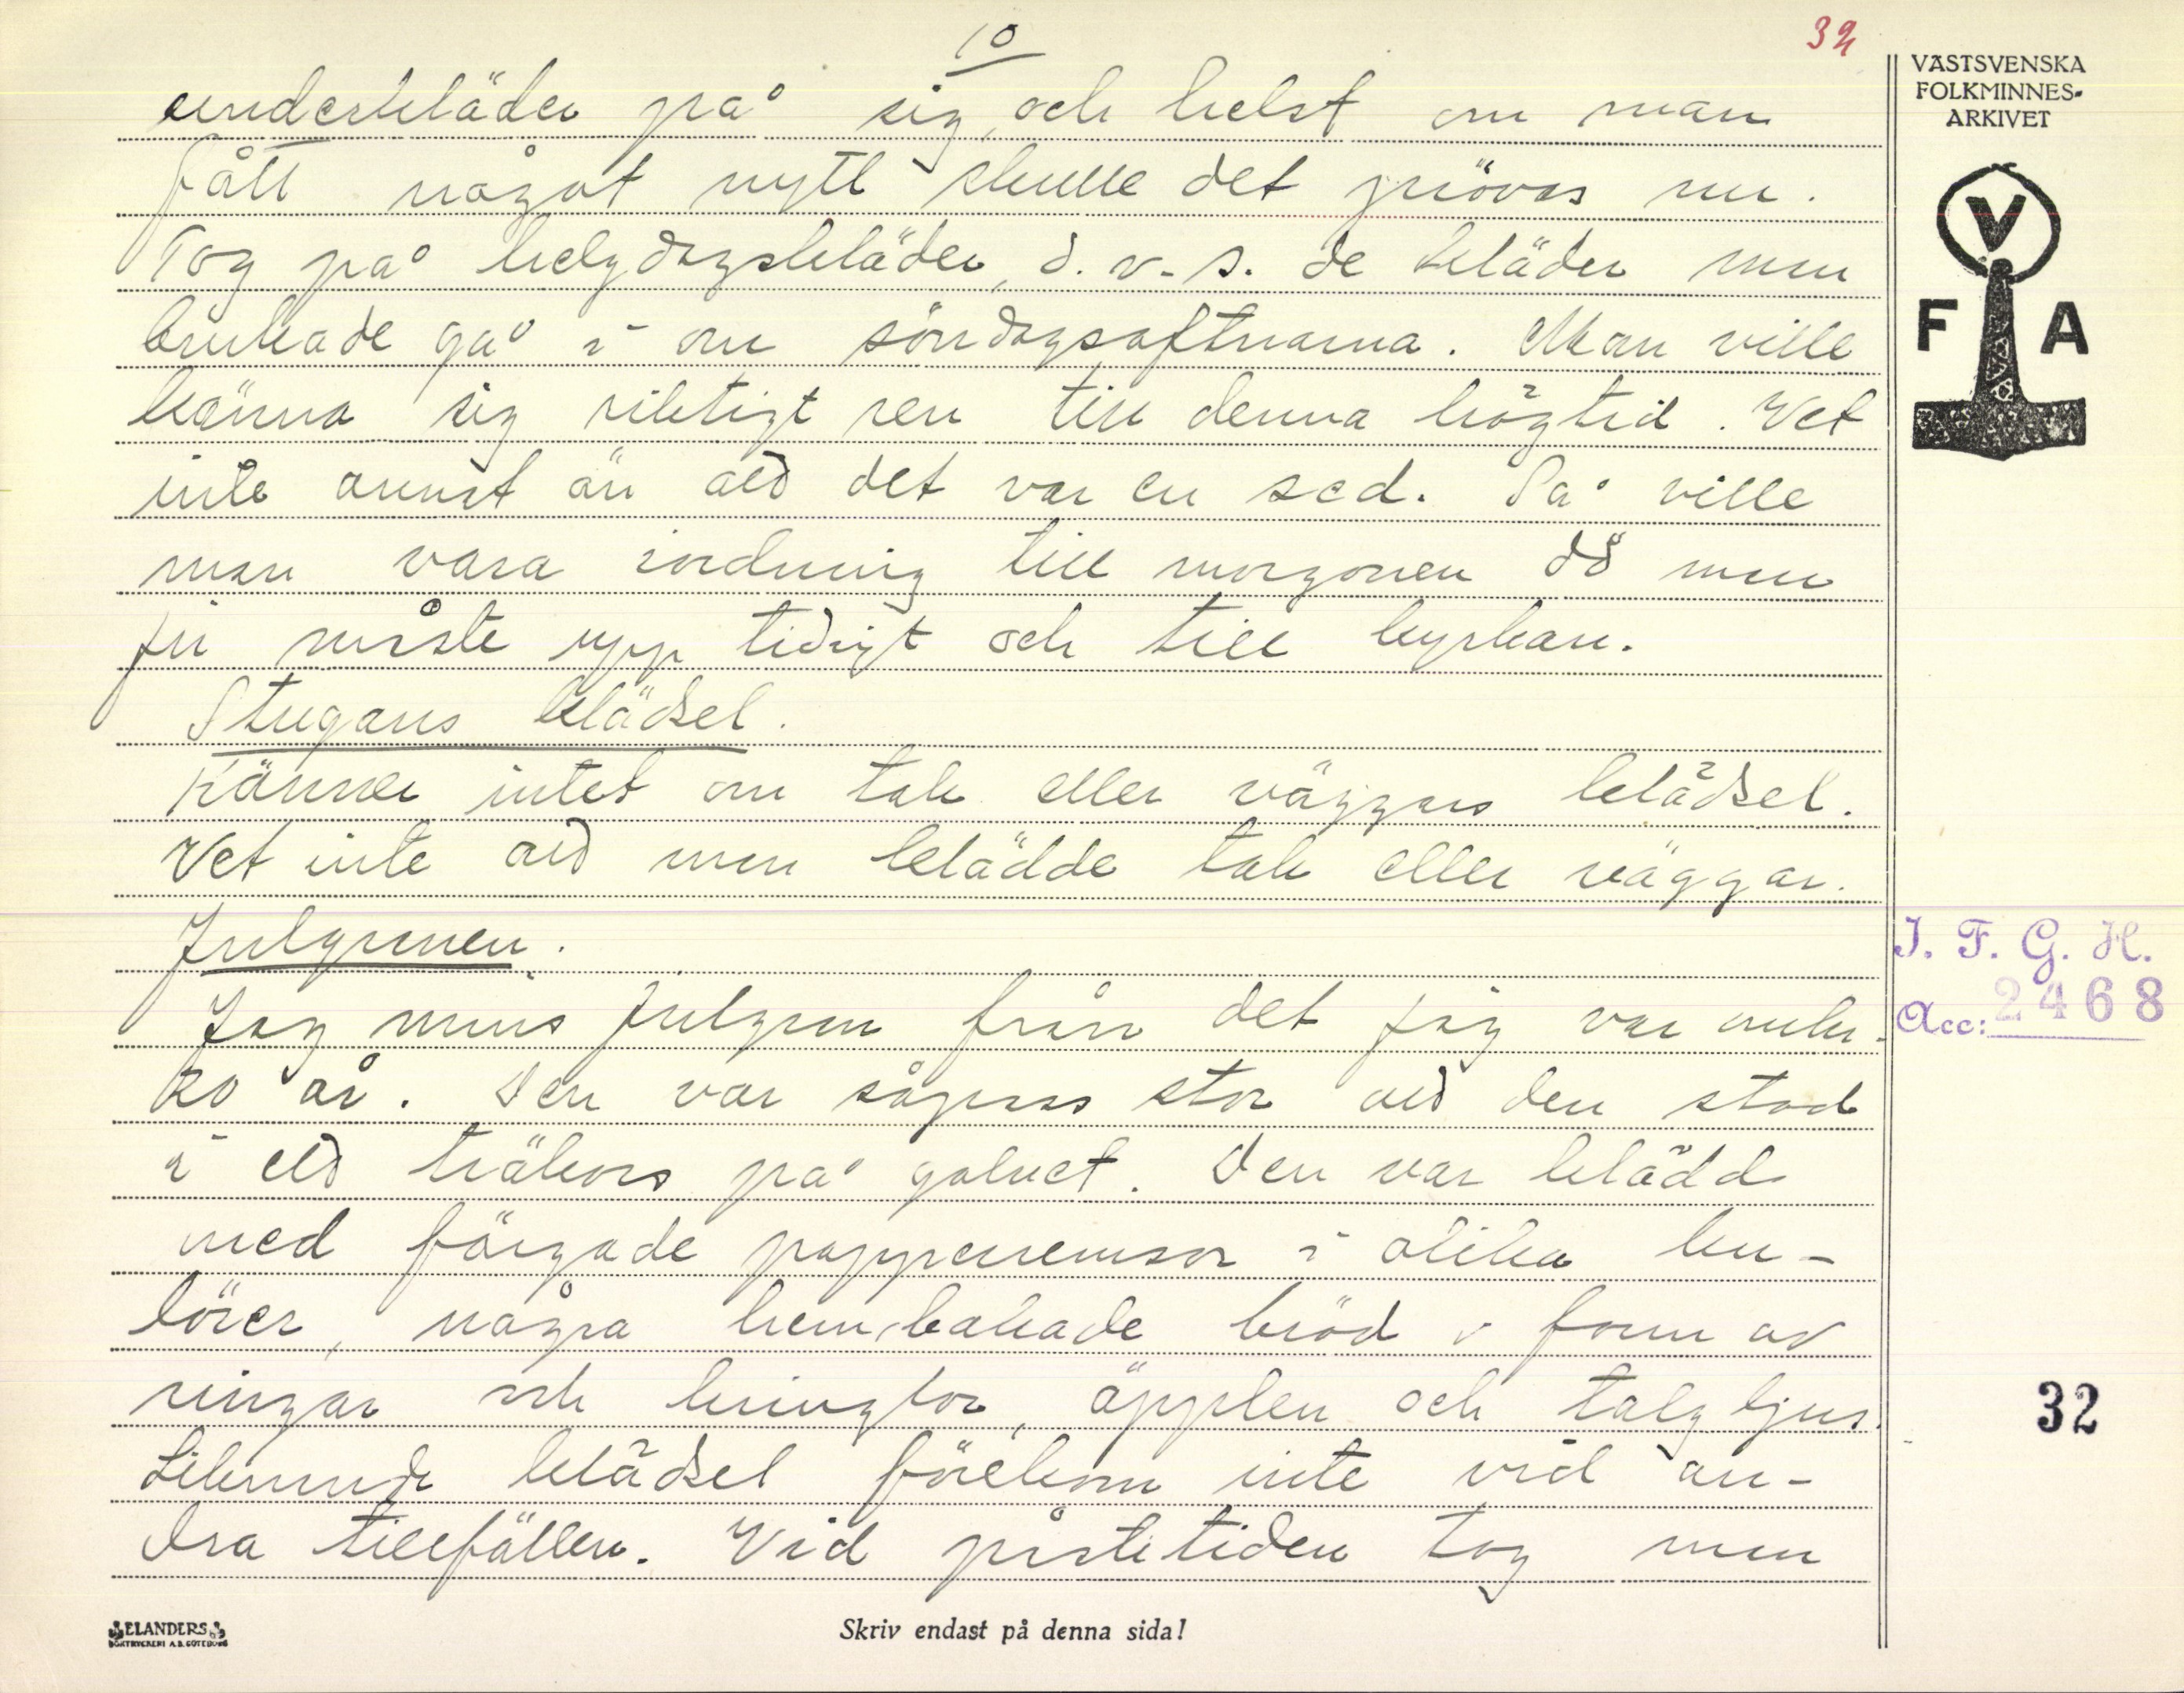 10
32
underkläder på sig, och helst om man
fått något nytt skulle det prövas nu.
Tog på helgdagskläder, d.v.s. de kläder man
brukade gå i om söndagsaftnarna. Man ville
känna sig riktigt ren till denna högtid. Vet
inte annat än att det var en sed. Så ville
man vara iordning till morgonen då man
ju måste upp tidigt och till kyrkan.
Stugans klädsel.
Känner intet om tak eller väggars beklädsel.
Vet inte att man beklädde tak eller väggar.
Julgranen.
Jag minns julgran från det jag var omkr.
20 år. Den var såpass stor att den stod
i ett träkors på golvet. Den var klädd
med färgade pappersremsor i olika ku-
lörer, några hembakade bröd i form av
ringar och kringlor, äpplen och talgljus.
Liknande klädsel förekom inte vid an-
dra tillfällen. Vid påsktiden tog man
VÄSTSVENSKA
FOLKMINNES-
ARKIVET
V
F A
I. F. G. H.
Acc: 2468
32
ELANDERS
BOKTRYCKERI A.B. GÖTEBORG
Skriv endast på denna sida!